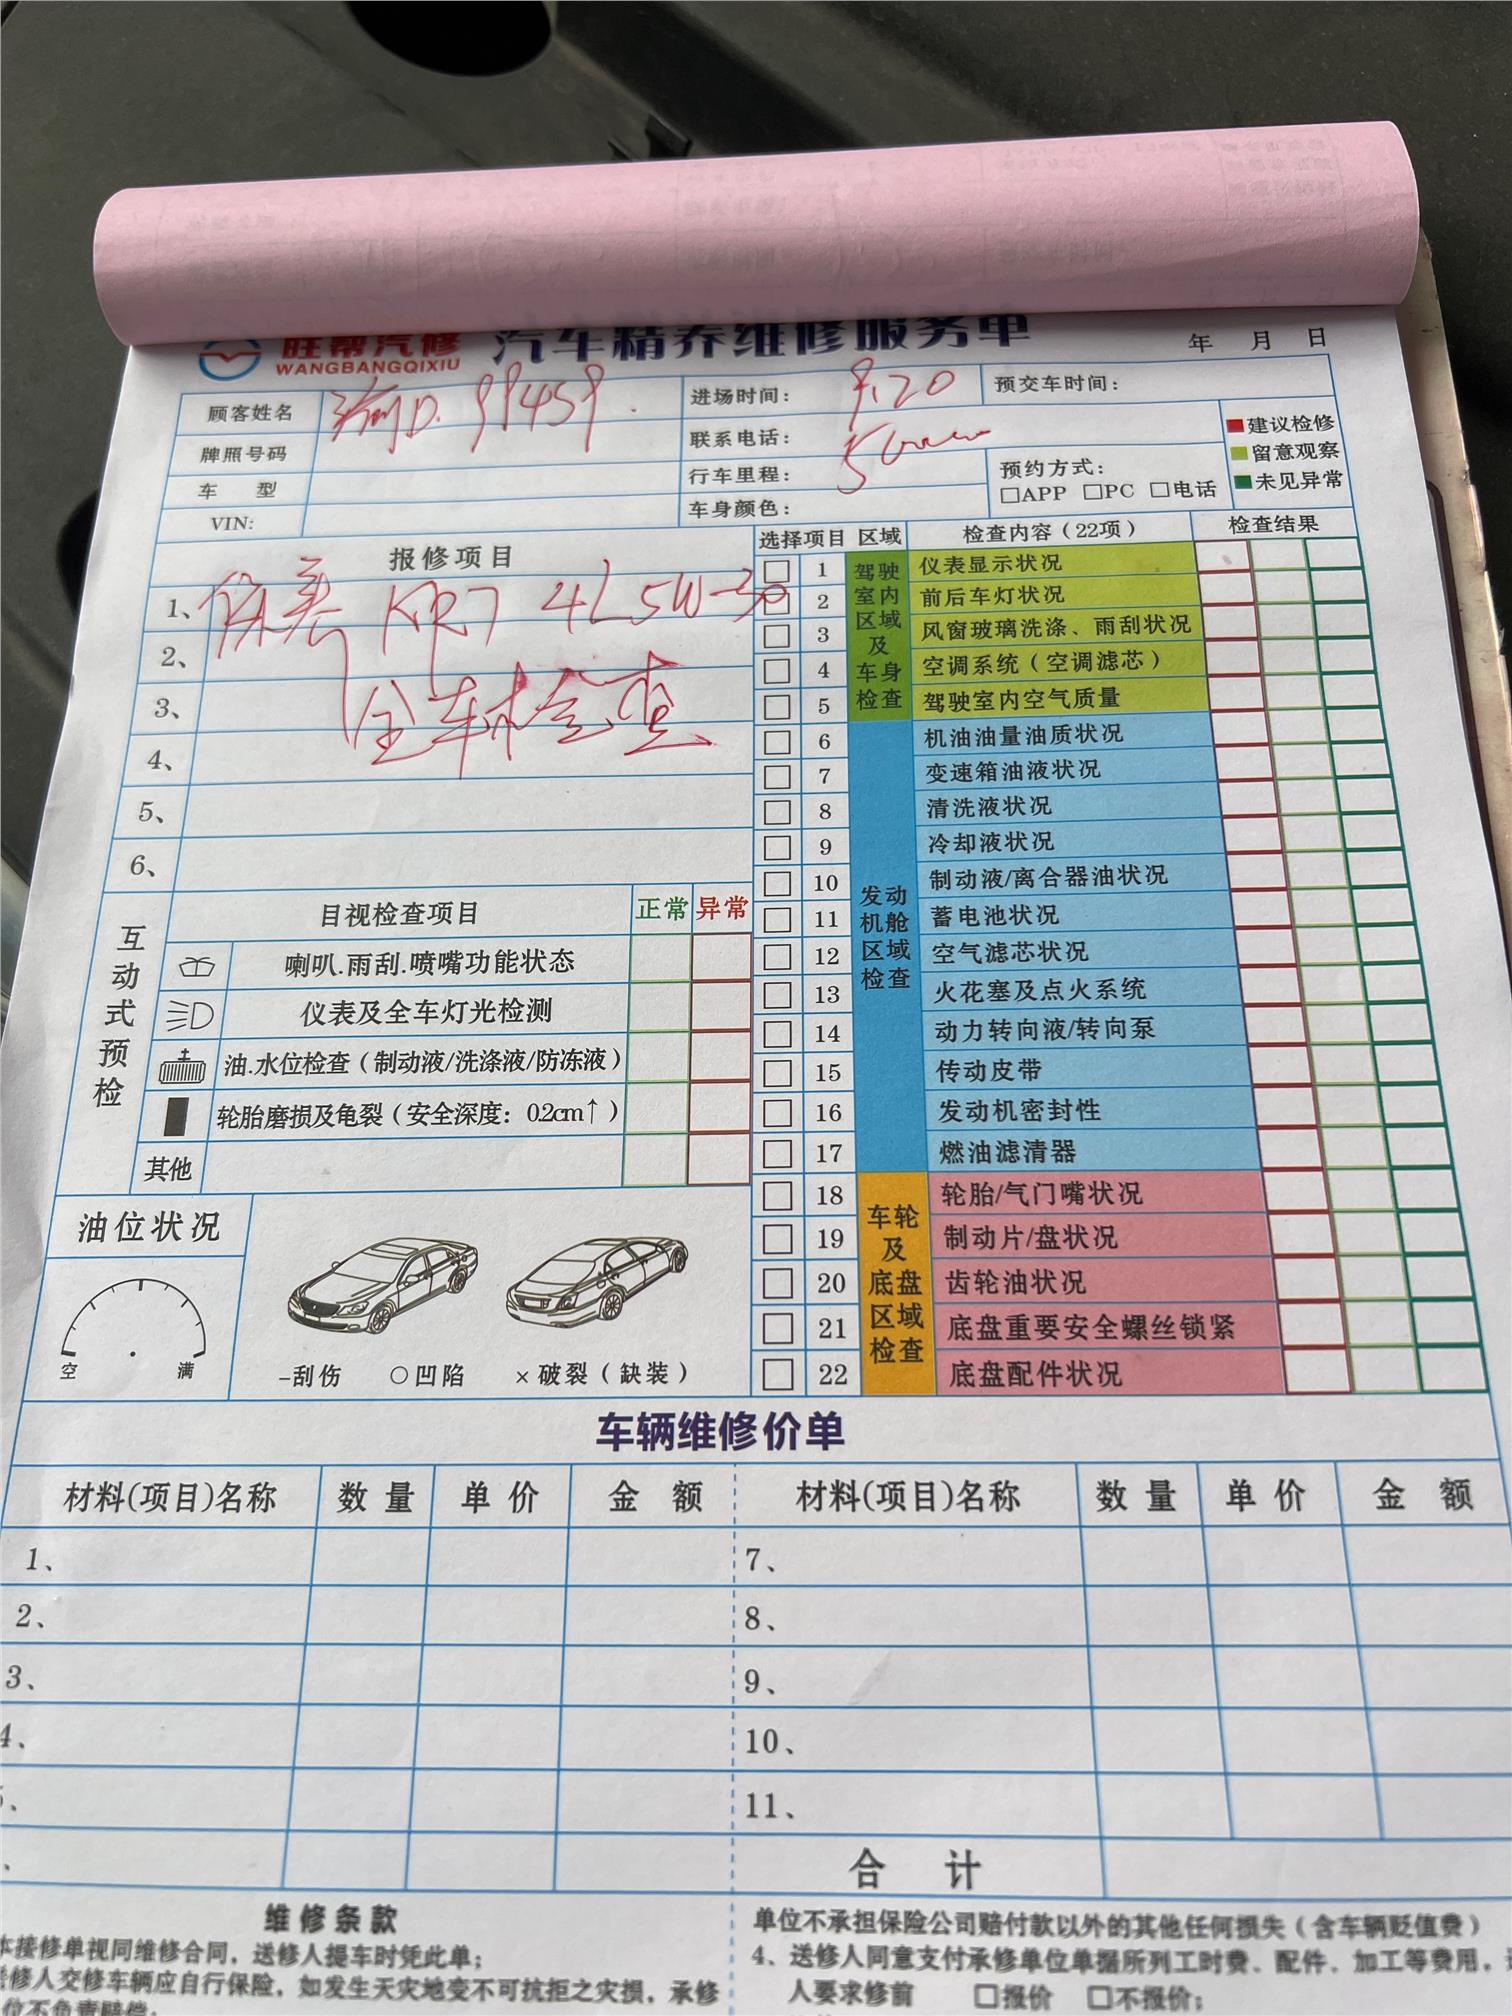 旺帮汽修 汽车精养维修服务单
WANGBANGQIXIU
年 月 日
顾客姓名 D.99459. 进场时间: 9.20 预交车时间:
牌照号码 联系电话:
车 型 行车里程: 预约方式:
□APP □PC □电话
VIN: 车身颜色:
建议检修
留意观察
未见异常
报修项目
1、 KR7 4L5W-30
2、全车检查
3、
4、
5、
6、
选择项目 区域 检查内容（22项） 检查结果
驾驶室内区域及车身检查
1 仪表显示状况
2 前后车灯状况
3 风窗玻璃洗涤、雨刮状况
4 空调系统（空调滤芯）
5 驾驶室内空气质量
发动机舱区域检查
6 机油油量油质状况
7 变速箱油液状况
8 清洗液状况
9 冷却液状况
10 制动液/离合器油状况
11 蓄电池状况
12 空气滤芯状况
13 火花塞及点火系统
14 动力转向液/转向泵
15 传动皮带
16 发动机密封性
17 燃油滤清器
车轮及底盘区域检查
18 轮胎/气门嘴状况
19 制动片/盘状况
20 齿轮油状况
21 底盘重要安全螺丝锁紧
22 底盘配件状况
互动式预检
目视检查项目 正常 异常
喇叭.雨刮.喷嘴功能状态
仪表及全车灯光检测
油.水位检查（制动液/洗涤液/防冻液）
轮胎磨损及龟裂（安全深度：0.2cm↑）
其他
油位状况
空 满
-刮伤 ○凹陷 ×破裂（缺装）
车辆维修价单
材料(项目)名称 数量 单价 金额 材料(项目)名称 数量 单价 金额
1、 7、
2、 8、
3、 9、
4、 10、
、 11、
、 合计
维修条款
本接修单视同维修合同，送修人提车时凭此单；
修人交修车辆应自行保险，如发生天灾地变不可抗拒之灾损，承修
位不负责赔偿；
单位不承担保险公司赔付款以外的其他任何损失（含车辆贬值费）
4、送修人同意支付承修单位单据所列工时费、配件、加工等费用，
人要求修前 □报价 □不报价；